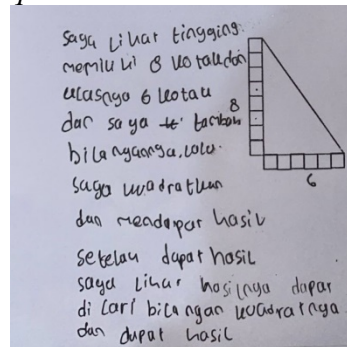 saya Lihat tingginya
memiliki 8 kotak dan
alasnya 6 kotak
dan saya tambah
bilangannya, lalu
saya kuadratkan
dan mendapat hasil
setelah dapat hasil
saya Lihat hasilnya dapat
di cari bilangan kuadratnya
dan dapat hasil
8
6